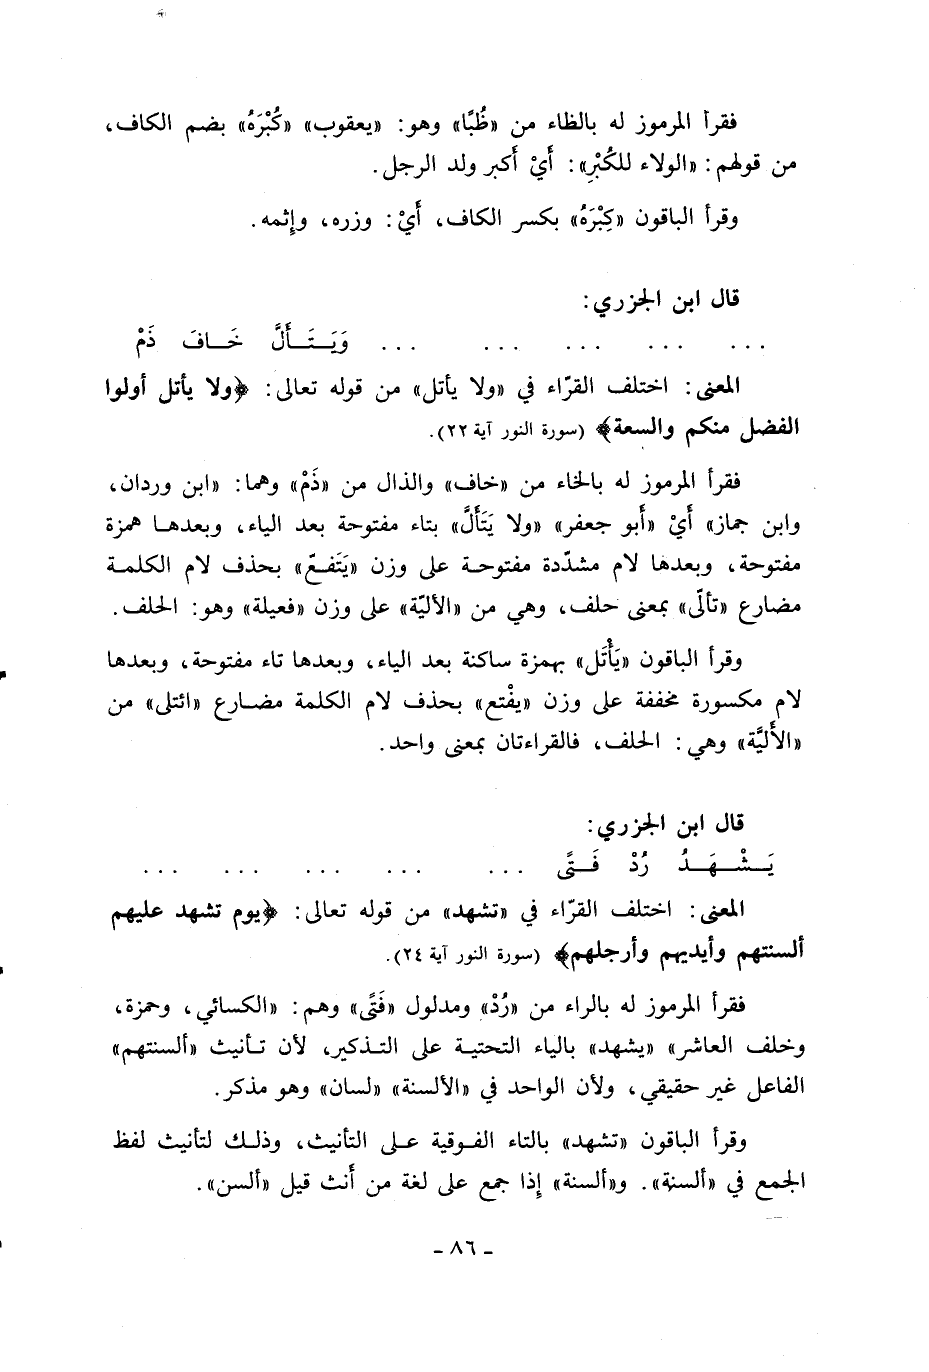 فقرأ المرموز له بالظاء من «ظُبًا» وهو: «يعقوب» «كُبْرَهُ» بضم الكاف،
من قولهم: «الولاء للكُبْرِ»: أَيْ أَكبر ولد الرجل.
وقرأ الباقون «كِبْرَهُ» بكسر الكاف، أَيْ: وزره، وإثمه.
قال ابن الجزري:
... ... ... ... ... وَيَتَأَلَّ خَافَ ذَمْ
المعنى: اختلف القرّاء في «ولا يأتل» من قوله تعالى: ﴿ولا يأتل أولوا
الفضل منكم والسعة﴾ (سورة النور آية ٢٢).
فقرأ المرموز له بالخاء من «خاف» والذال من «ذَمْ» وهما: «ابن وردان،
وابن جماز» أَيْ «أبو جعفر» «ولا يَتَأَلَّ» بتاء مفتوحة بعد الياء، وبعدها همزة
مفتوحة، وبعدها لام مشدّدة مفتوحة على وزن «يَتَفعّ» بحذف لام الكلمة
مضارع «تألّى» بمعنى حلف، وهي من «الأليّة» على وزن «فعيلة» وهو: الحلف.
وقرأ الباقون «يَأْتَل» بهمزة ساكنة بعد الياء، وبعدها تاء مفتوحة، وبعدها
لام مكسورة مخففة على وزن «يفْتع» بحذف لام الكلمة مضارع «ائتلى» من
«الأَليَّة» وهي: الحلف، فالقراءتان بمعنى واحد.
قال ابن الجزري:
يَشْهَدُ رُدْ فَتًى ... ... ... ... ...
المعنى: اختلف القرّاء في «تشهد» من قوله تعالى: ﴿يوم تشهد عليهم
ألسنتهم وأيديهم وأرجلهم﴾ (سورة النور آية ٢٤).
فقرأ المرموز له بالراء من «رُدْ» ومدلول «فَتًى» وهم: «الكسائي، وحمزة،
وخلف العاشر» «يشهد» بالياء التحتية على التذكير، لأن تأنيث «ألسنتهم»
الفاعل غير حقيقي، ولأن الواحد في «الألسنة» «لسان» وهو مذكر.
وقرأ الباقون «تشهد» بالتاء الفوقية على التأنيث، وذلك لتأنيث لفظ
الجمع في «ألسنة». و«ألسنة» إذا جمع على لغة من أَنث قيل «ألسن».
- ٨٦ -